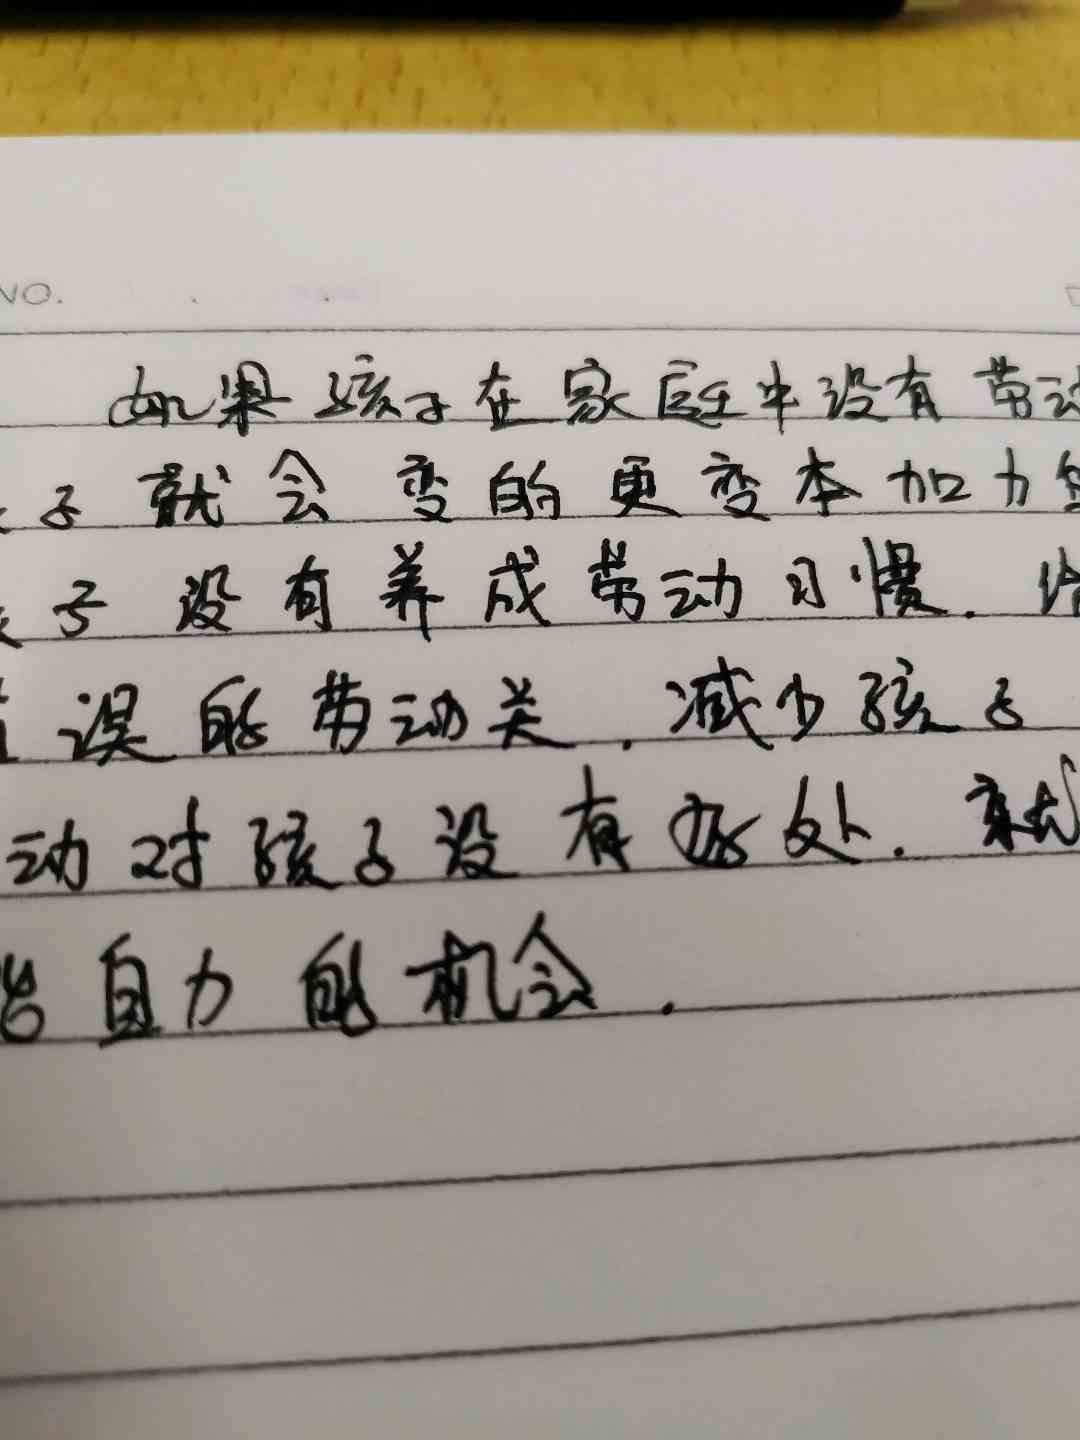 NO.
如果孩子在家庭中没有带动
子就会变的更变本加力
子没有养成带动习惯.给
误的带动关.减少孩子
动对孩子没有好处.就
自力的机会.